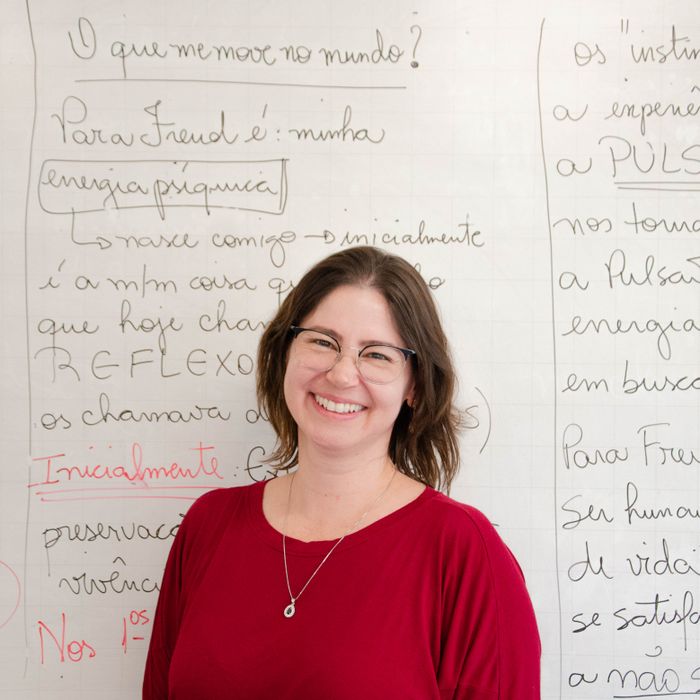 O que me move no mundo?
Para Freud é: minha
energia psíquica
↳ nasce comigo → inicialmente
é a m/m coisa
que hoje
REFLEXO
os chamava
Inicialmente:
preservaçã
vivênci
Nos 1ºs
os "instin
a experiê
a PULS
nos torna
a Pulsã
energia
em busca
Para Freu
Ser huma
de vida
se satisfa
a não